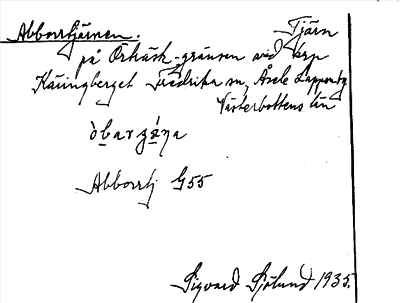 Abborrtjärnen. Tjärn
på Örträsk-gränsen vid krp
Käringberget Fredrika sn, Åsele Lappmark
Västerbottens län
Abborrtj G55
Sigvard Sjölund 1935.